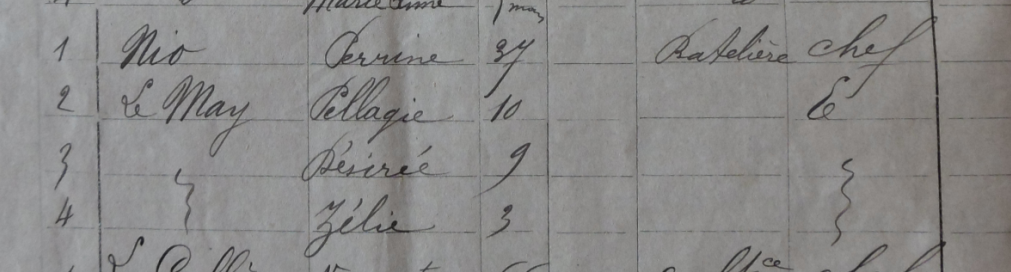 Marie Anne
1 Nio Perrine 37 Ratelière chef
2 Le May Pellagie 10 E
3 } Désirée 9 }
4 Zélie 3
Le